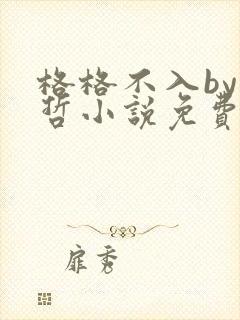 格格不入by
哲小說免費
扉秀